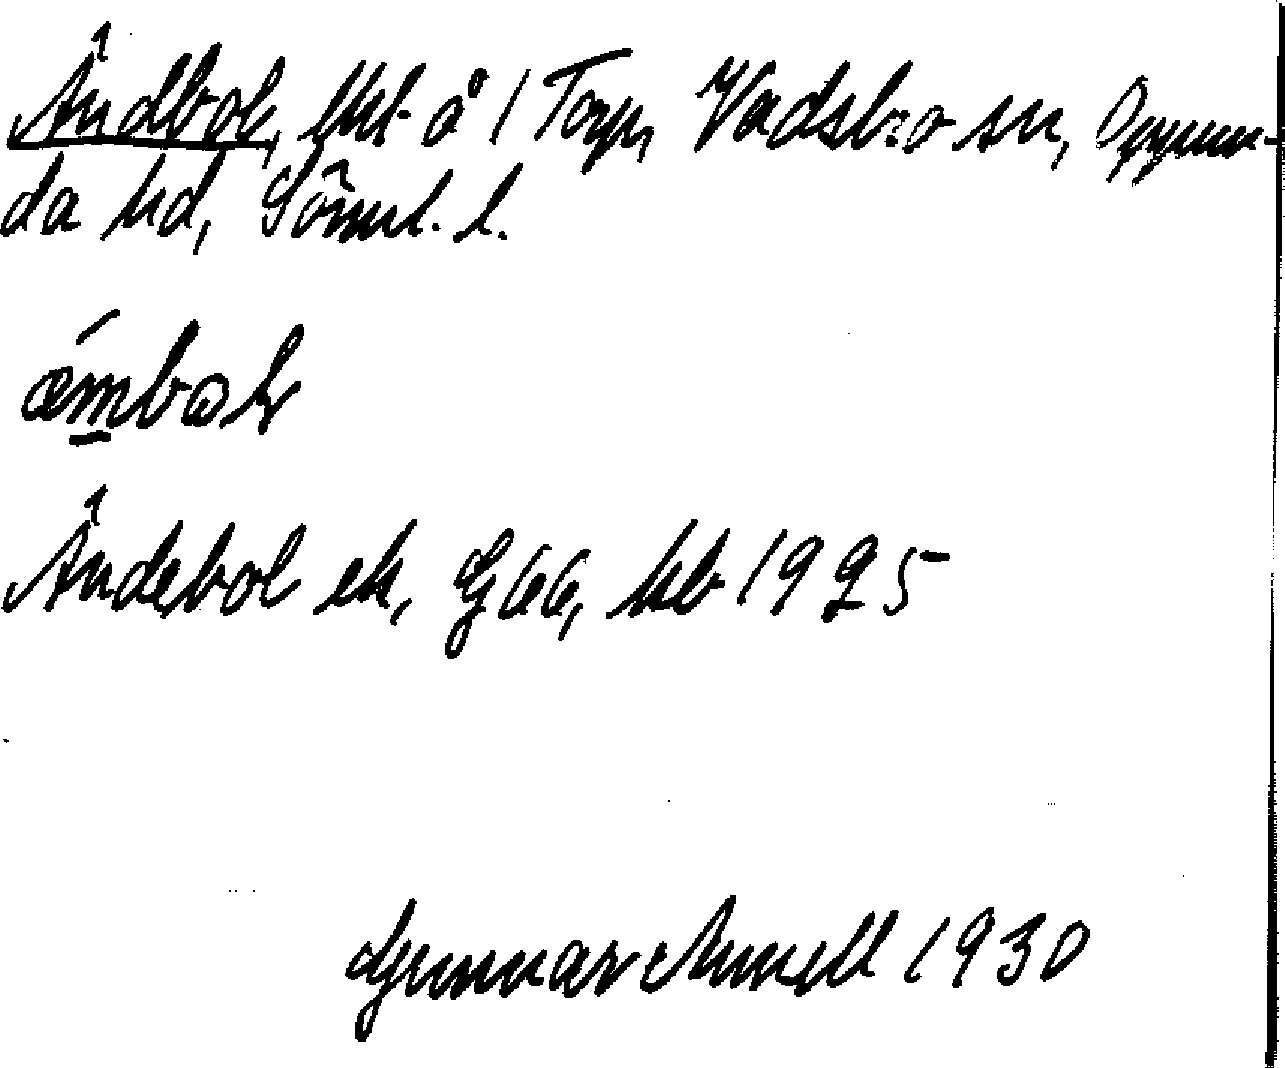 Ändbol, lht å 1 Torp, Vadsbro sn, Oppun-
da hd, Söml. l.
ǽmbo̤l
Ändebol ek, G 66, kb 1925
Gunnar Amnell 1930